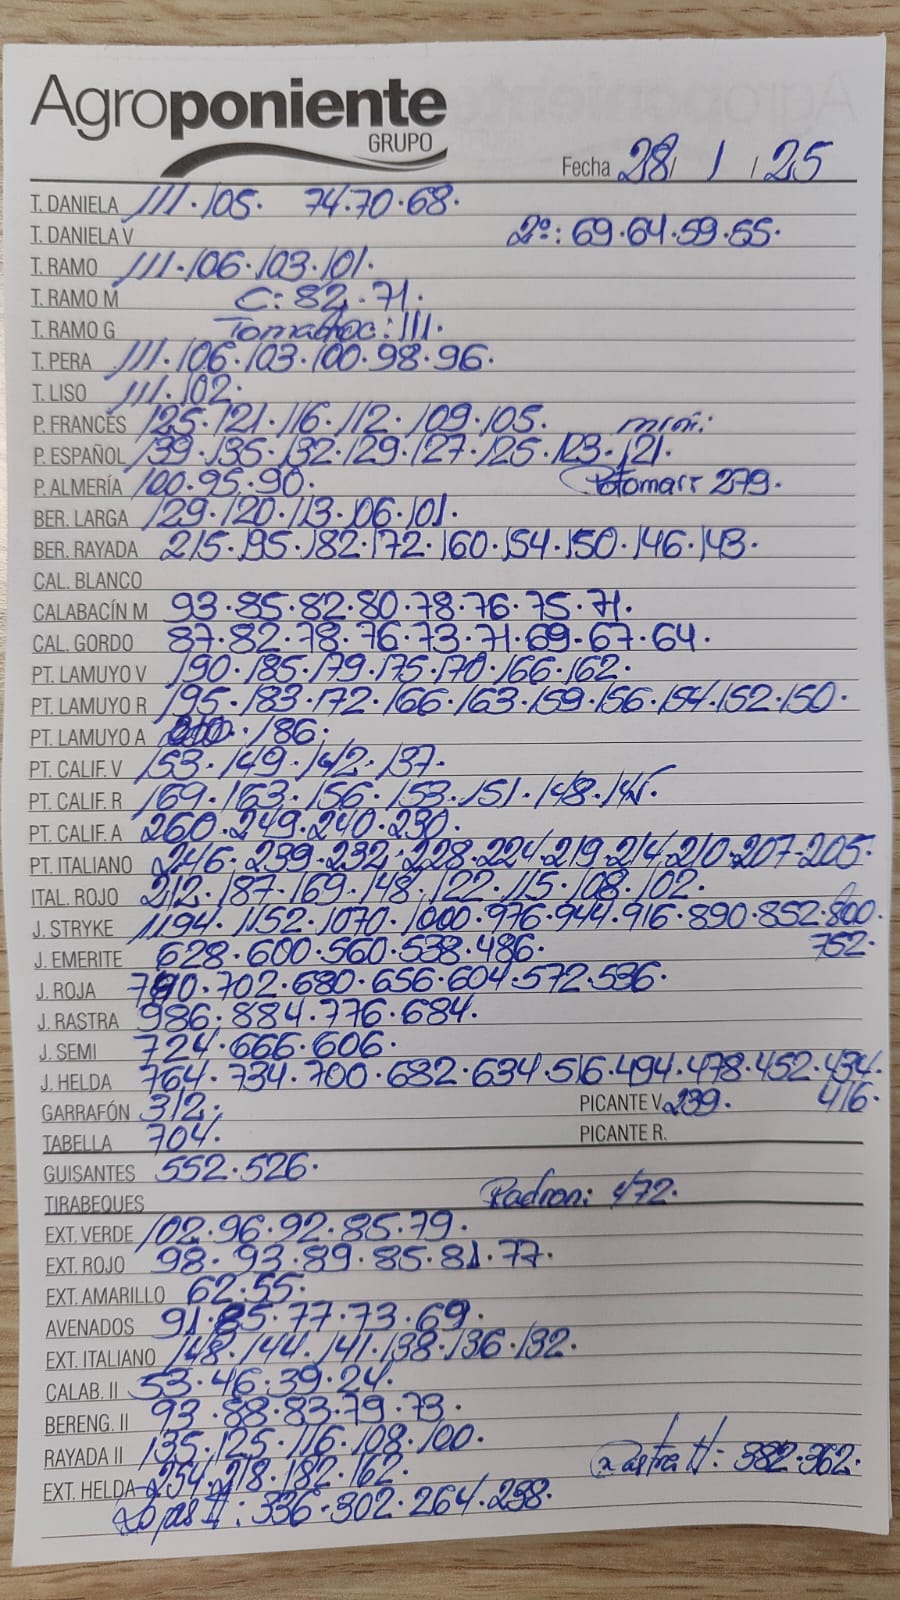 Agroponiente
GRUPO
Fecha 28 / 1 / 25
T. DANIELA 111·105· 74·70·68·
T. DANIELA V 2º: 69·64·59·55·
T. RAMO 111·106·103·101·
T. RAMO M C: 82·71·
T. RAMO G 111·
T. PERA 111·106·103·100·98·96·
T. LISO 111·102·
P. FRANCÉS 125·121·116·112·109·105· mini:
P. ESPAÑOL 139·135·132·129·127·125·123·121·
P. ALMERÍA 100·95·90· 279·
BER. LARGA 129·120·113·106·101·
BER. RAYADA 215·195·182·172·160·154·150·146·143·
CAL. BLANCO
CALABACÍN M 93·85·82·80·78·76·75·71·
CAL. GORDO 87·82·78·76·73·71·69·67·64·
PT. LAMUYO V 190·185·179·175·170·166·162·
PT. LAMUYO R 195·183·172·166·163·159·156·154·152·150·
PT. LAMUYO A 186·
PT. CALIF. V 153·149·142·137·
PT. CALIF. R 169·163·156·153·151·148·145·
PT. CALIF. A 260·249·240·230·
PT. ITALIANO 246·239·232·228·224·219·214·210·207·205·
ITAL. ROJO 212·187·169·148·122·115·108·102·
J. STRYKE 1194·1152·1070·1000·976·944·916·890·852·800·
J. EMERITE 628·600·560·538·486· 752·
J. ROJA 702·680·656·604·572·536·
J. RASTRA 986·884·776·684·
J. SEMI 724·666·606·
J. HELDA 764·734·700·682·634·516·494·478·452·434·
GARRAFÓN 312· PICANTE V. 239· 416·
TABELLA 704· PICANTE R.
GUISANTES 552·526·
TIRABEQUES Padron: 472·
EXT. VERDE 102·96·92·85·79·
EXT. ROJO 98·93·89·85·81·77·
EXT. AMARILLO 62·55·
AVENADOS 91·85·77·73·69·
EXT. ITALIANO 148·144·141·138·136·132·
CALAB. II 53·46·39·24·
BERENG. II 93·88·83·79·73·
RAYADA II 135·125·116·108·100·
EXT. HELDA 254·218·182·162· Rastra II: 382·362·
II: 336·302·264·238·